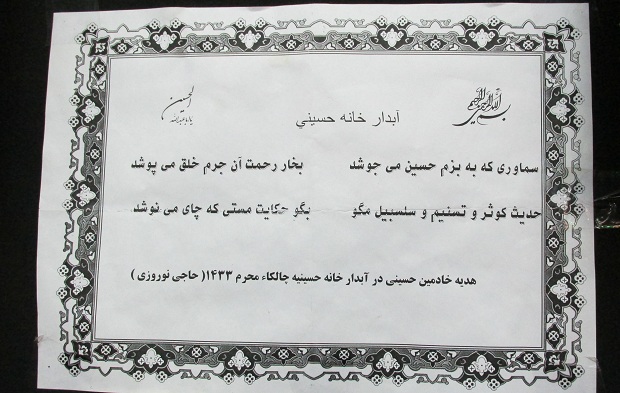 بسم الله الرحمن الرحیم
الحسین
یا اباعبدالله
آبدار خانه حسيني
سماوری که به بزم حسین می جوشد بخار رحمت آن جرم خلق می پوشد
حدیث کوثر و تسنیم و سلسبیل مگو بگو حکایت مستی که چای می نوشد
هدیه خادمین حسینی در آبدار خانه حسینیه چالکاء محرم ۱۴۳۳( حاجی نوروزی )